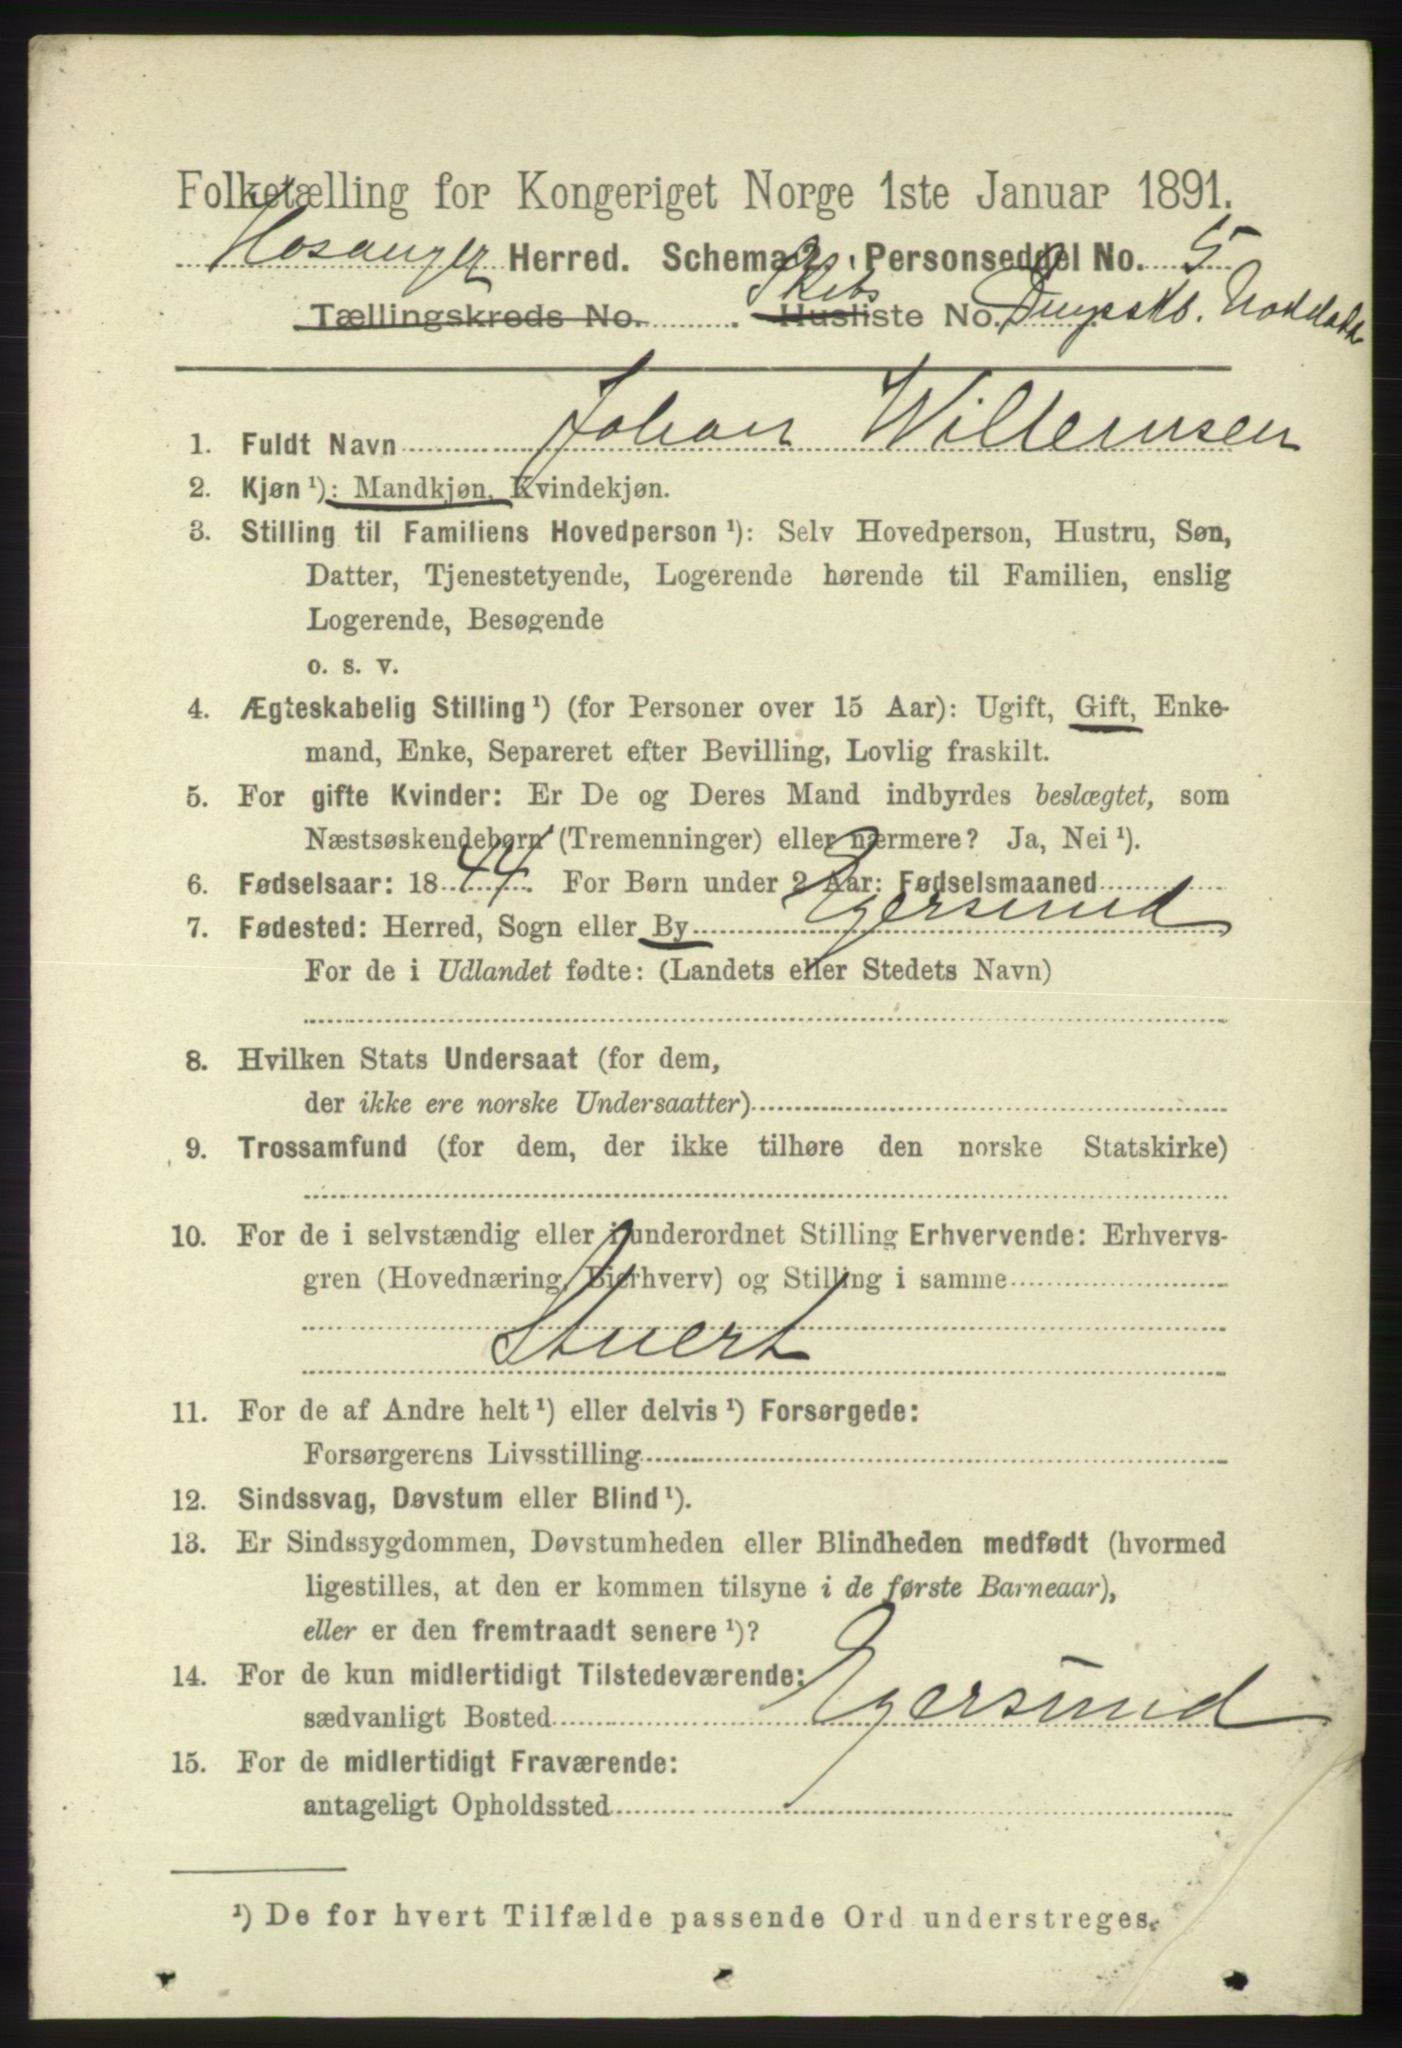 Folketælling for Kongeriget Norge 1ste Januar 1891.
Hosanger Herred. Schema 2. Personseddel No. 5
Tællingskreds No. . Skibs Husliste No. Dmpskb.
1. Fuldt Navn Johan Willemsen
2. Kjøn ¹): Mandkjøn, Kvindekjøn.
3. Stilling til Familiens Hovedperson ¹): Selv Hovedperson, Hustru, Søn,
Datter, Tjenestetyende, Logerende hørende til Familien, enslig
Logerende, Besøgende
o. s. v.
4. Ægteskabelig Stilling ¹) (for Personer over 15 Aar): Ugift, Gift, Enke-
mand, Enke, Separeret efter Bevilling, Lovlig fraskilt.
5. For gifte Kvinder: Er De og Deres Mand indbyrdes beslægtet, som
Næstsøskendebørn (Tremenninger) eller nærmere? Ja, Nei ¹).
6. Fødselsaar: 1844. For Børn under 2 Aar: Fødselsmaaned
7. Fødested: Herred, Sogn eller By Egersund
For de i Udlandet fødte: (Landets eller Stedets Navn)
8. Hvilken Stats Undersaat (for dem,
der ikke ere norske Undersaatter)
9. Trossamfund (for dem, der ikke tilhøre den norske Statskirke)
10. For de i selvstændig eller i underordnet Stilling Erhvervende: Erhvervs-
gren (Hovednæring, Bierhverv) og Stilling i samme
Stuert
11. For de af Andre helt ¹) eller delvis ¹) Forsørgede:
Forsørgerens Livsstilling
12. Sindssvag, Døvstum eller Blind ¹).
13. Er Sindssygdommen, Døvstumheden eller Blindheden medfødt (hvormed
ligestilles, at den er kommen tilsyne i de første Barneaar),
eller er den fremtraadt senere ¹)?
14. For de kun midlertidigt Tilstedeværende:
sædvanligt Bosted Egersund
15. For de midlertidigt Fraværende:
antageligt Opholdssted
¹) De for hvert Tilfælde passende Ord understreges.